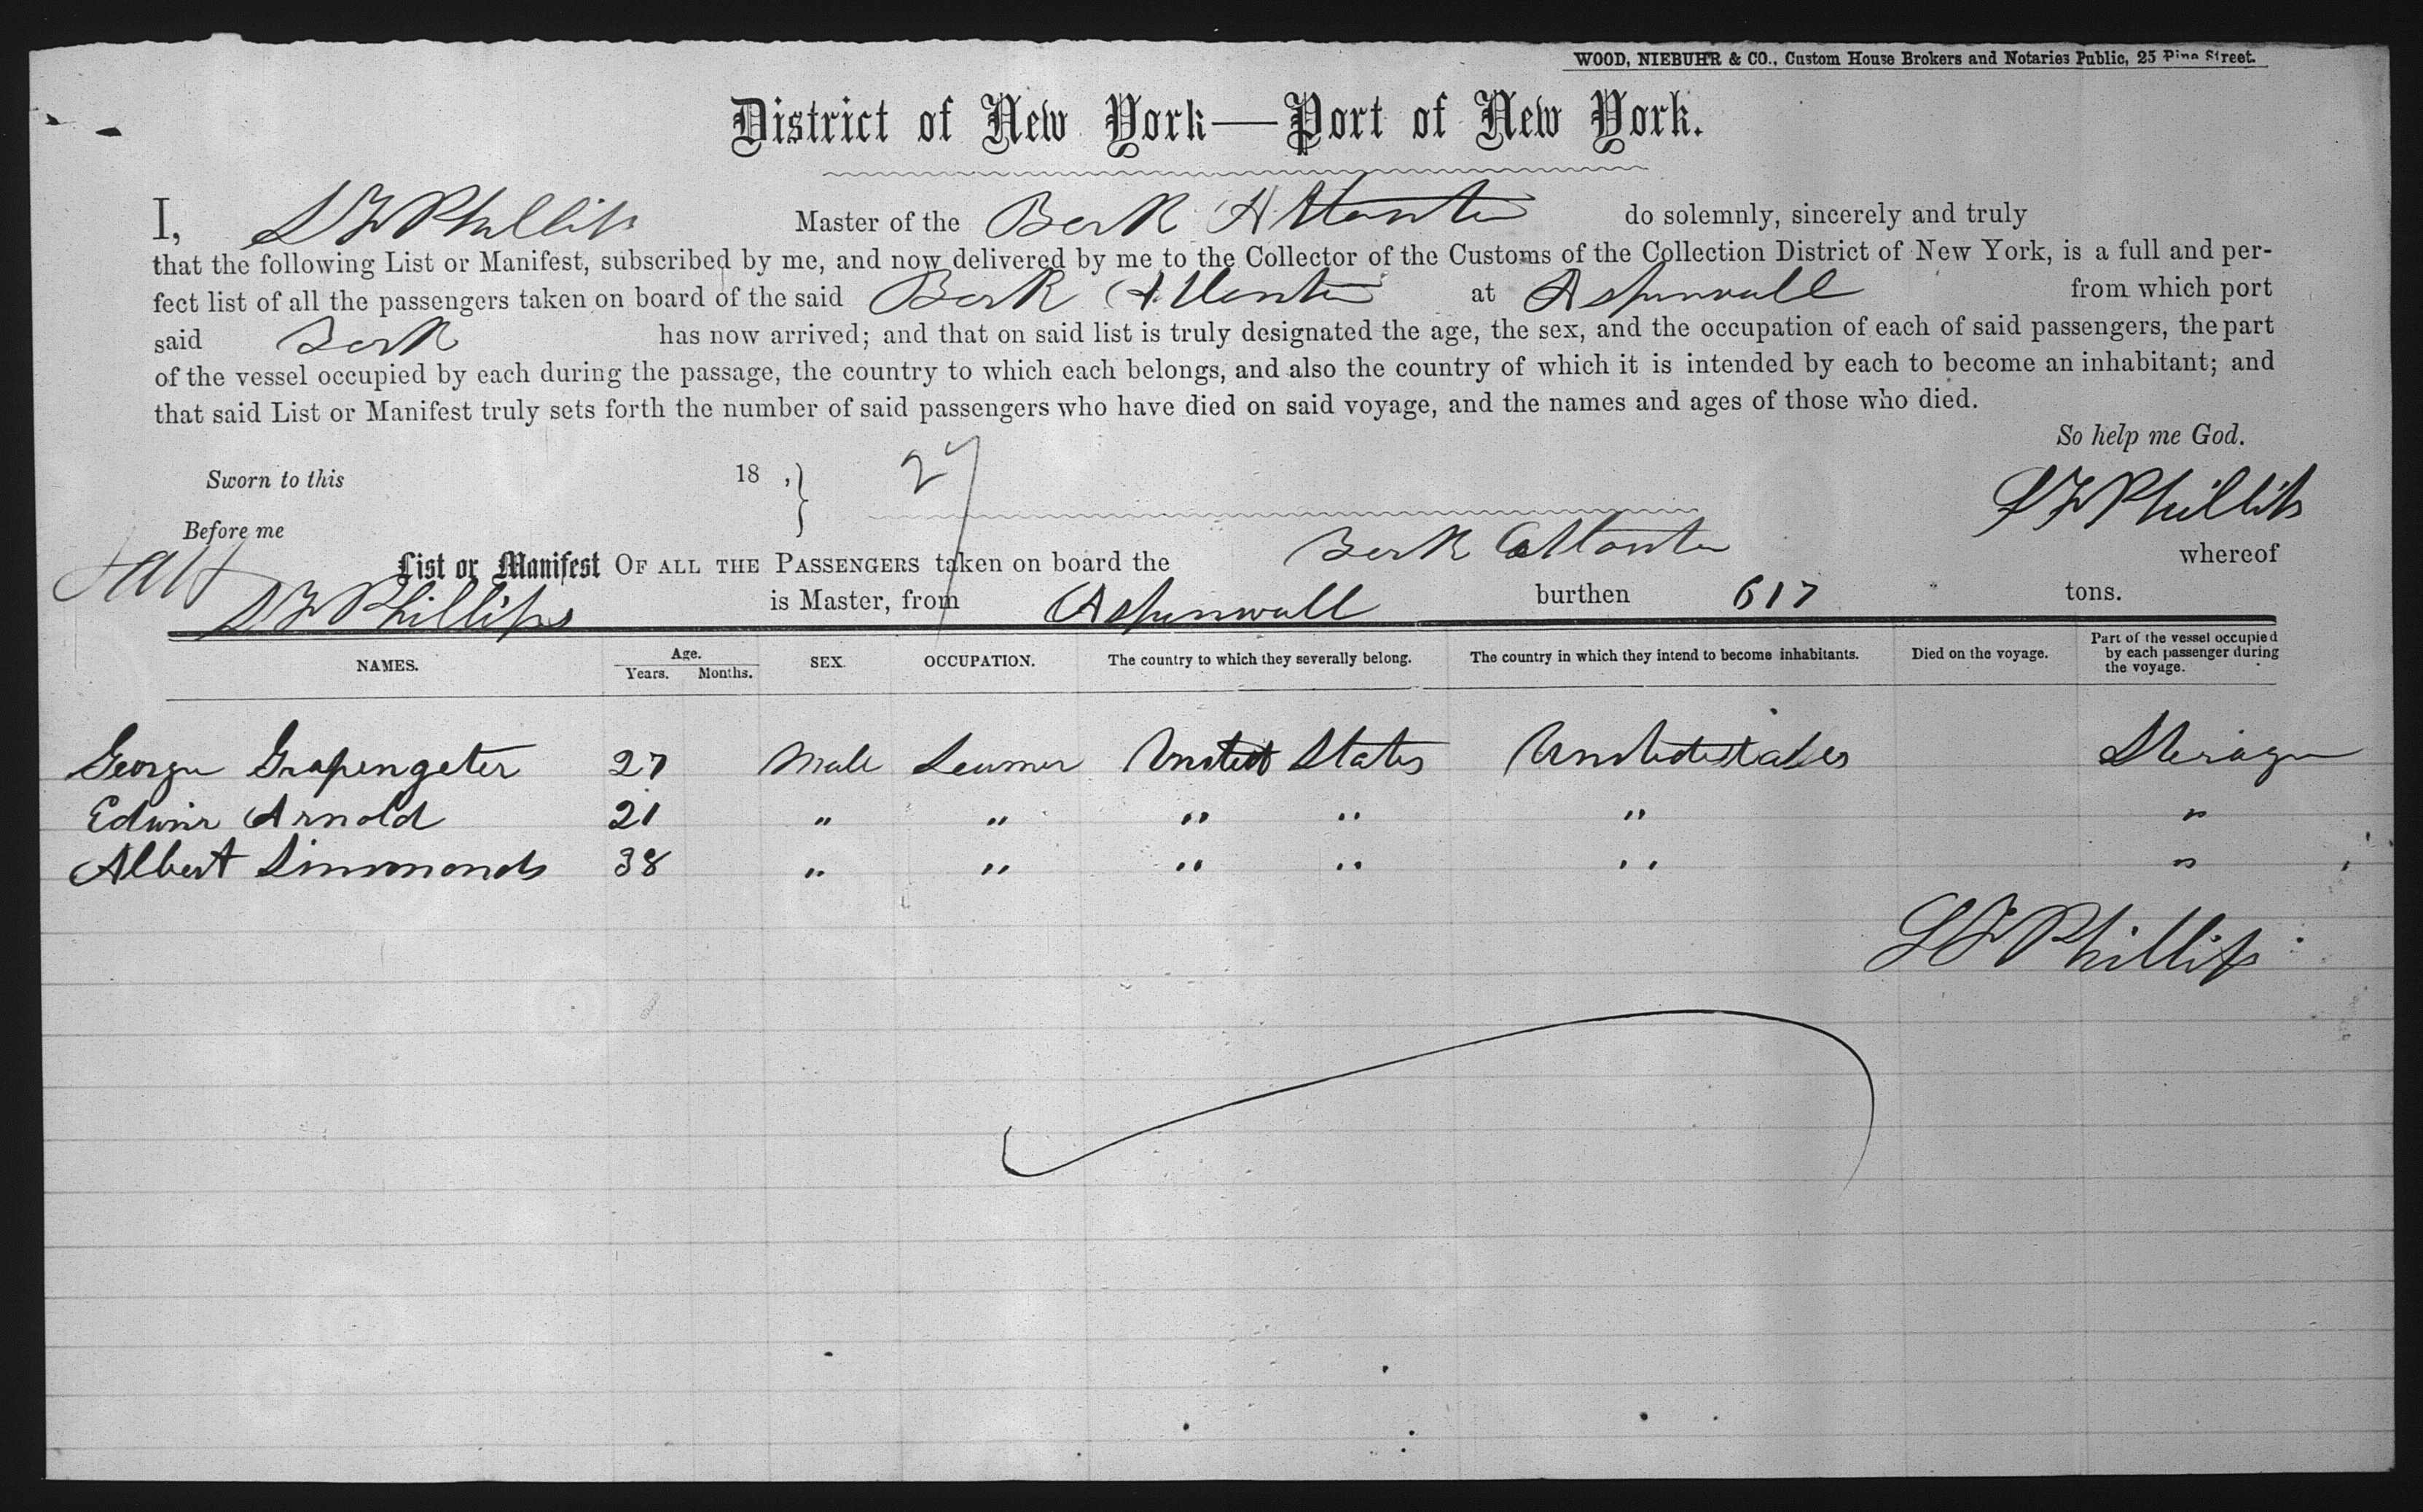 WOOD, NIEBUHR & CO., Custom House Brokers and Notaries Public, 25 Pine Street.
District of New York—Port of New York.
I, Phillips Master of the Bark Atlantic do solemnly, sincerely and truly
that the following List or Manifest, subscribed by me, and now delivered by me to the Collector of the Customs of the Collection District of New York, is a full and per-
fect list of all the passengers taken on board of the said Bark Atlantic at Aspinwall from which port
said Bark has now arrived; and that on said list is truly designated the age, the sex, and the occupation of each of said passengers, the part
of the vessel occupied by each during the passage, the country to which each belongs, and also the country of which it is intended by each to become an inhabitant; and
that said List or Manifest truly sets forth the number of said passengers who have died on said voyage, and the names and ages of those who died.
So help me God.
Sworn to this 18 , } 27
Phillips
Before me
List or Manifest OF ALL THE PASSENGERS taken on board the Bark Atlantic whereof
Phillips is Master, from Aspinwall burthen 617 tons.
NAMES. Age. Years. Months. SEX. OCCUPATION. The country to which they severally belong. The country in which they intend to become inhabitants. Died on the voyage. Part of the vessel occupied by each passenger during the voyage.
George Grapengeter 27 Male Seamen United States United States Sterage
Edwin Arnold 21 " " " " " "
Albert Simmonds 38 " " " " " "
Phillips